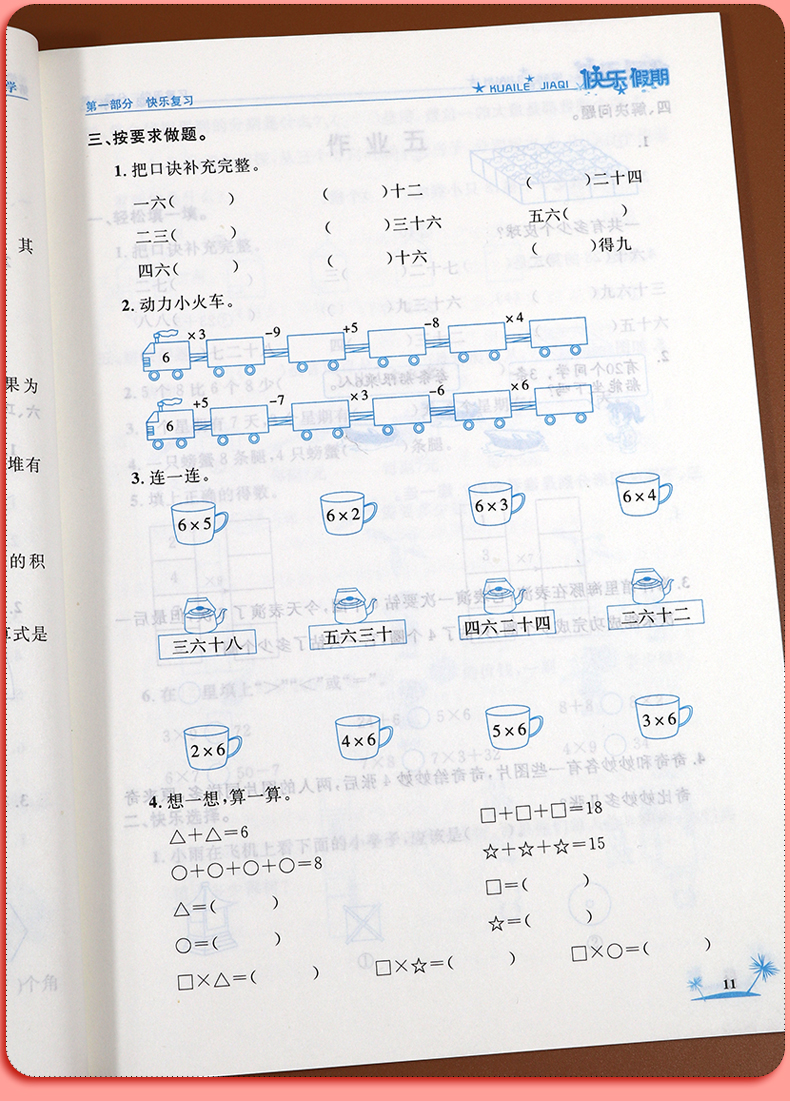 学
其
果为
堆有
的积
算式是
)个角
第一部分 快乐复习
KUAILE JIAQI 快乐假期
三、按要求做题。
1. 把口诀补充完整。
一六( ) ( )十二 ( )二十四
二三( ) ( )三十六 五六( )
四六( ) ( )十六 ( )得九
2. 动力小火车。
6 ×3 -9 +5 -8 ×4
6 +5 -7 ×3 -6 ×6
3. 连一连。
6×5 6×2 6×3 6×4
三六十八 五六三十 四六二十四 二六十二
2×6 4×6 5×6 3×6
4. 想一想,算一算。
△+△=6 □+□+□=18
○+○+○+○=8 ☆+☆+☆=15
△=( ) □=( )
○=( ) ☆=( )
□×△=( ) □×☆=( ) □×○=( )
11